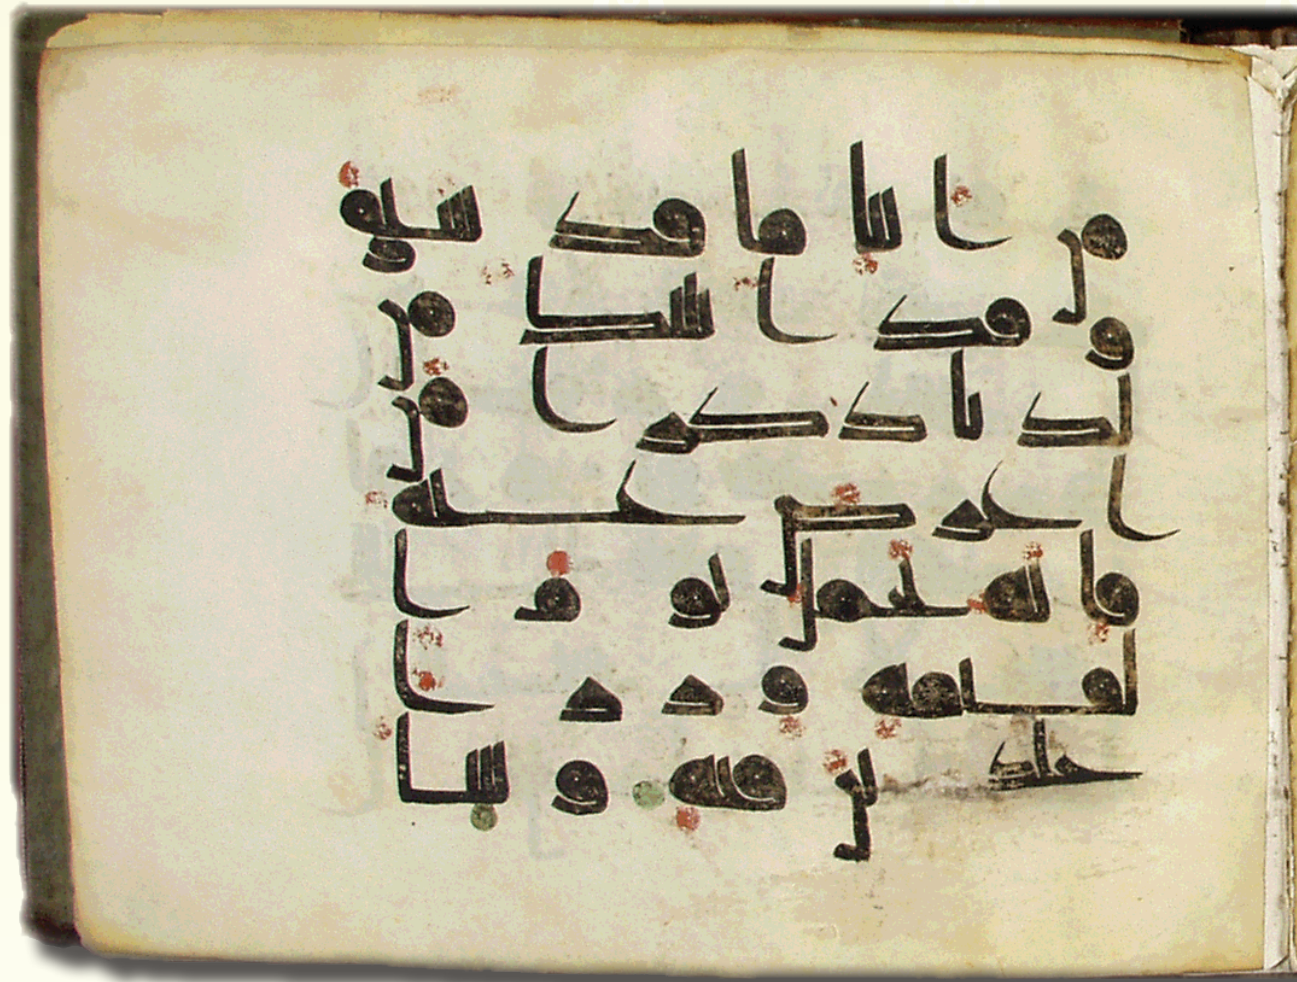 من انبا ما قد سبق
وقد اتينك من
لدنا ذكرا من
اعرض عنه
فانه يحمل يوم ا
لقيمه وزرا
خلدين فيه وسا